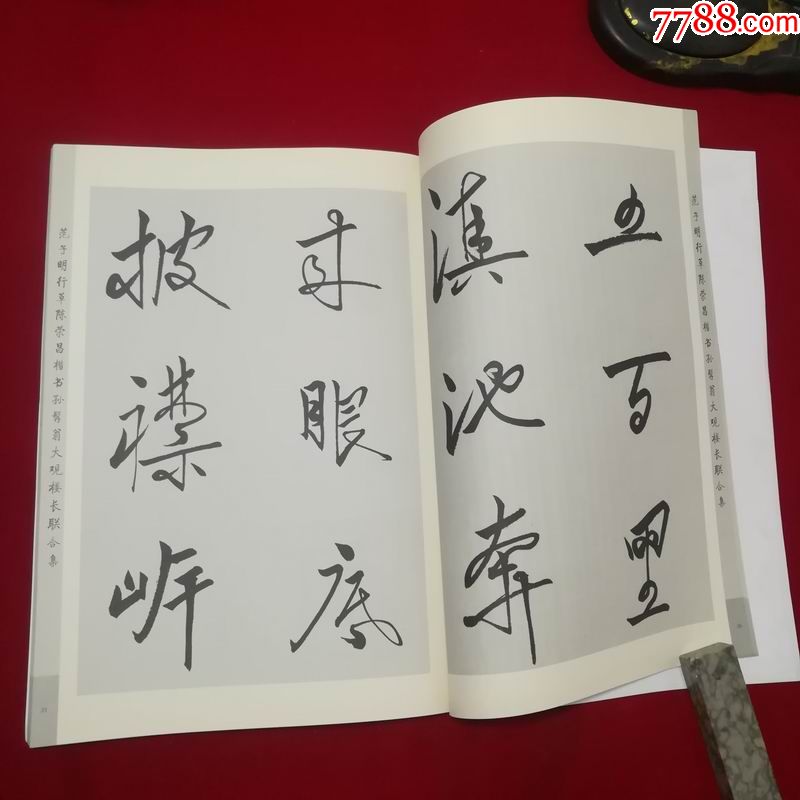 7788.com
五百里
滇池奔
来眼底
披襟岸
范子明行草陈荣昌楷书孙髯翁大观楼长联合集
范子明行草陈荣昌楷书孙髯翁大观楼长联合集